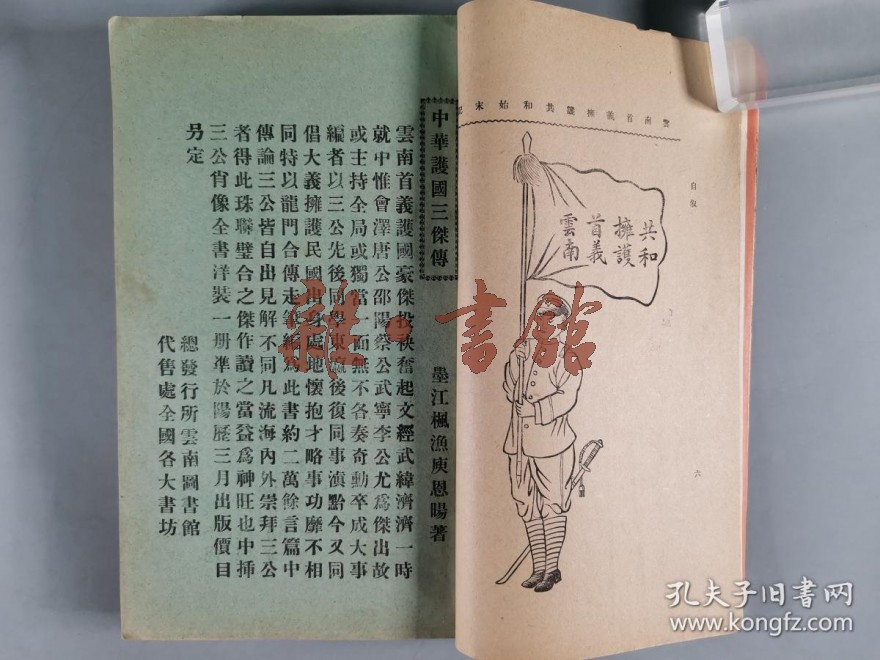 雲南首義擁護共和始末
自敘
共和
擁護
首義
雲南
六
中華護國三傑傳
墨江楓漁庾恩暘著
雲南首義護國豪傑投袂奮起文經武緯濟濟一時
就中惟會澤唐公邵陽蔡公武寧李公尤爲傑出故
或主持全局或獨當一面無不各奏奇勳卒成大事
編者以三公先後同學東瀛後復同事滇黔今又同
倡大義擁護民國出身處地懷抱才略事功靡不相
同特以龍門合傳走筆編爲此書約二萬餘言篇中
傳論三公皆自出見解不同凡流海內外崇拜三公
者得此珠聯璧合之傑作讀之當益爲神旺也中揷
三公肖像全書洋裝一册準於陽歷三月出版價目
另定
總發行所雲南圖書館
代售處全國各大書坊
雜·書館
孔夫子旧书网
www.kongfz.com